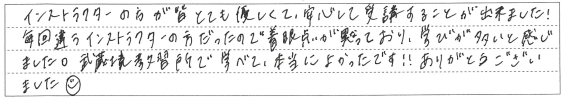 インストラクターの方が皆とても優しくて、安心して受講することが出来ました!
毎回違うインストラクターの方だったので着眼点が異っており、学びが多いと感じ
ました。武蔵境教習所で学べて、本当によかったです!!ありがとうござい
ました